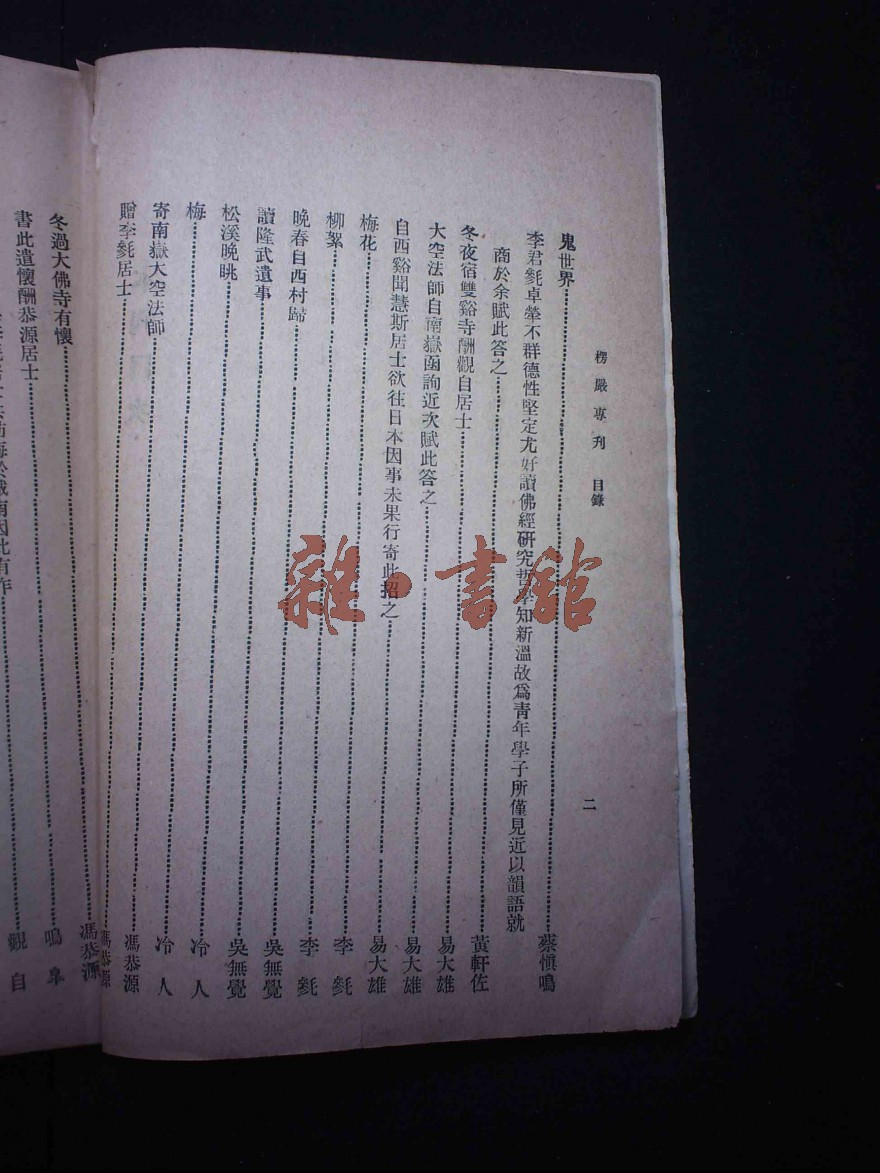 楞嚴專刊 目錄 二
鬼世界……蔡慎鳴
李君毿卓犖不群德性堅定尤好讀佛經研究哲學知新溫故爲青年學子所僅見近以韻語就
商於余賦此答之……黃軒佐
冬夜宿雙谿寺酬觀自居士……易大雄
大空法師自南嶽函詢近況賦此答之……易大雄
自西谿聞慧斯居士欲往日本因事未果行寄此招之……易大雄
梅花……李毿
柳絮……李毿
晚春自西村歸……吳無覺
讀隆武遺事……吳無覺
松溪晚眺……冷人
梅……冷人
寄南嶽大空法師……馮恭源
贈李毿居士……馮恭源
馮恭源
冬過大佛寺有懷……鳴皋
書此遣懷酬恭源居士……觀自
南因此有作
雜·書館